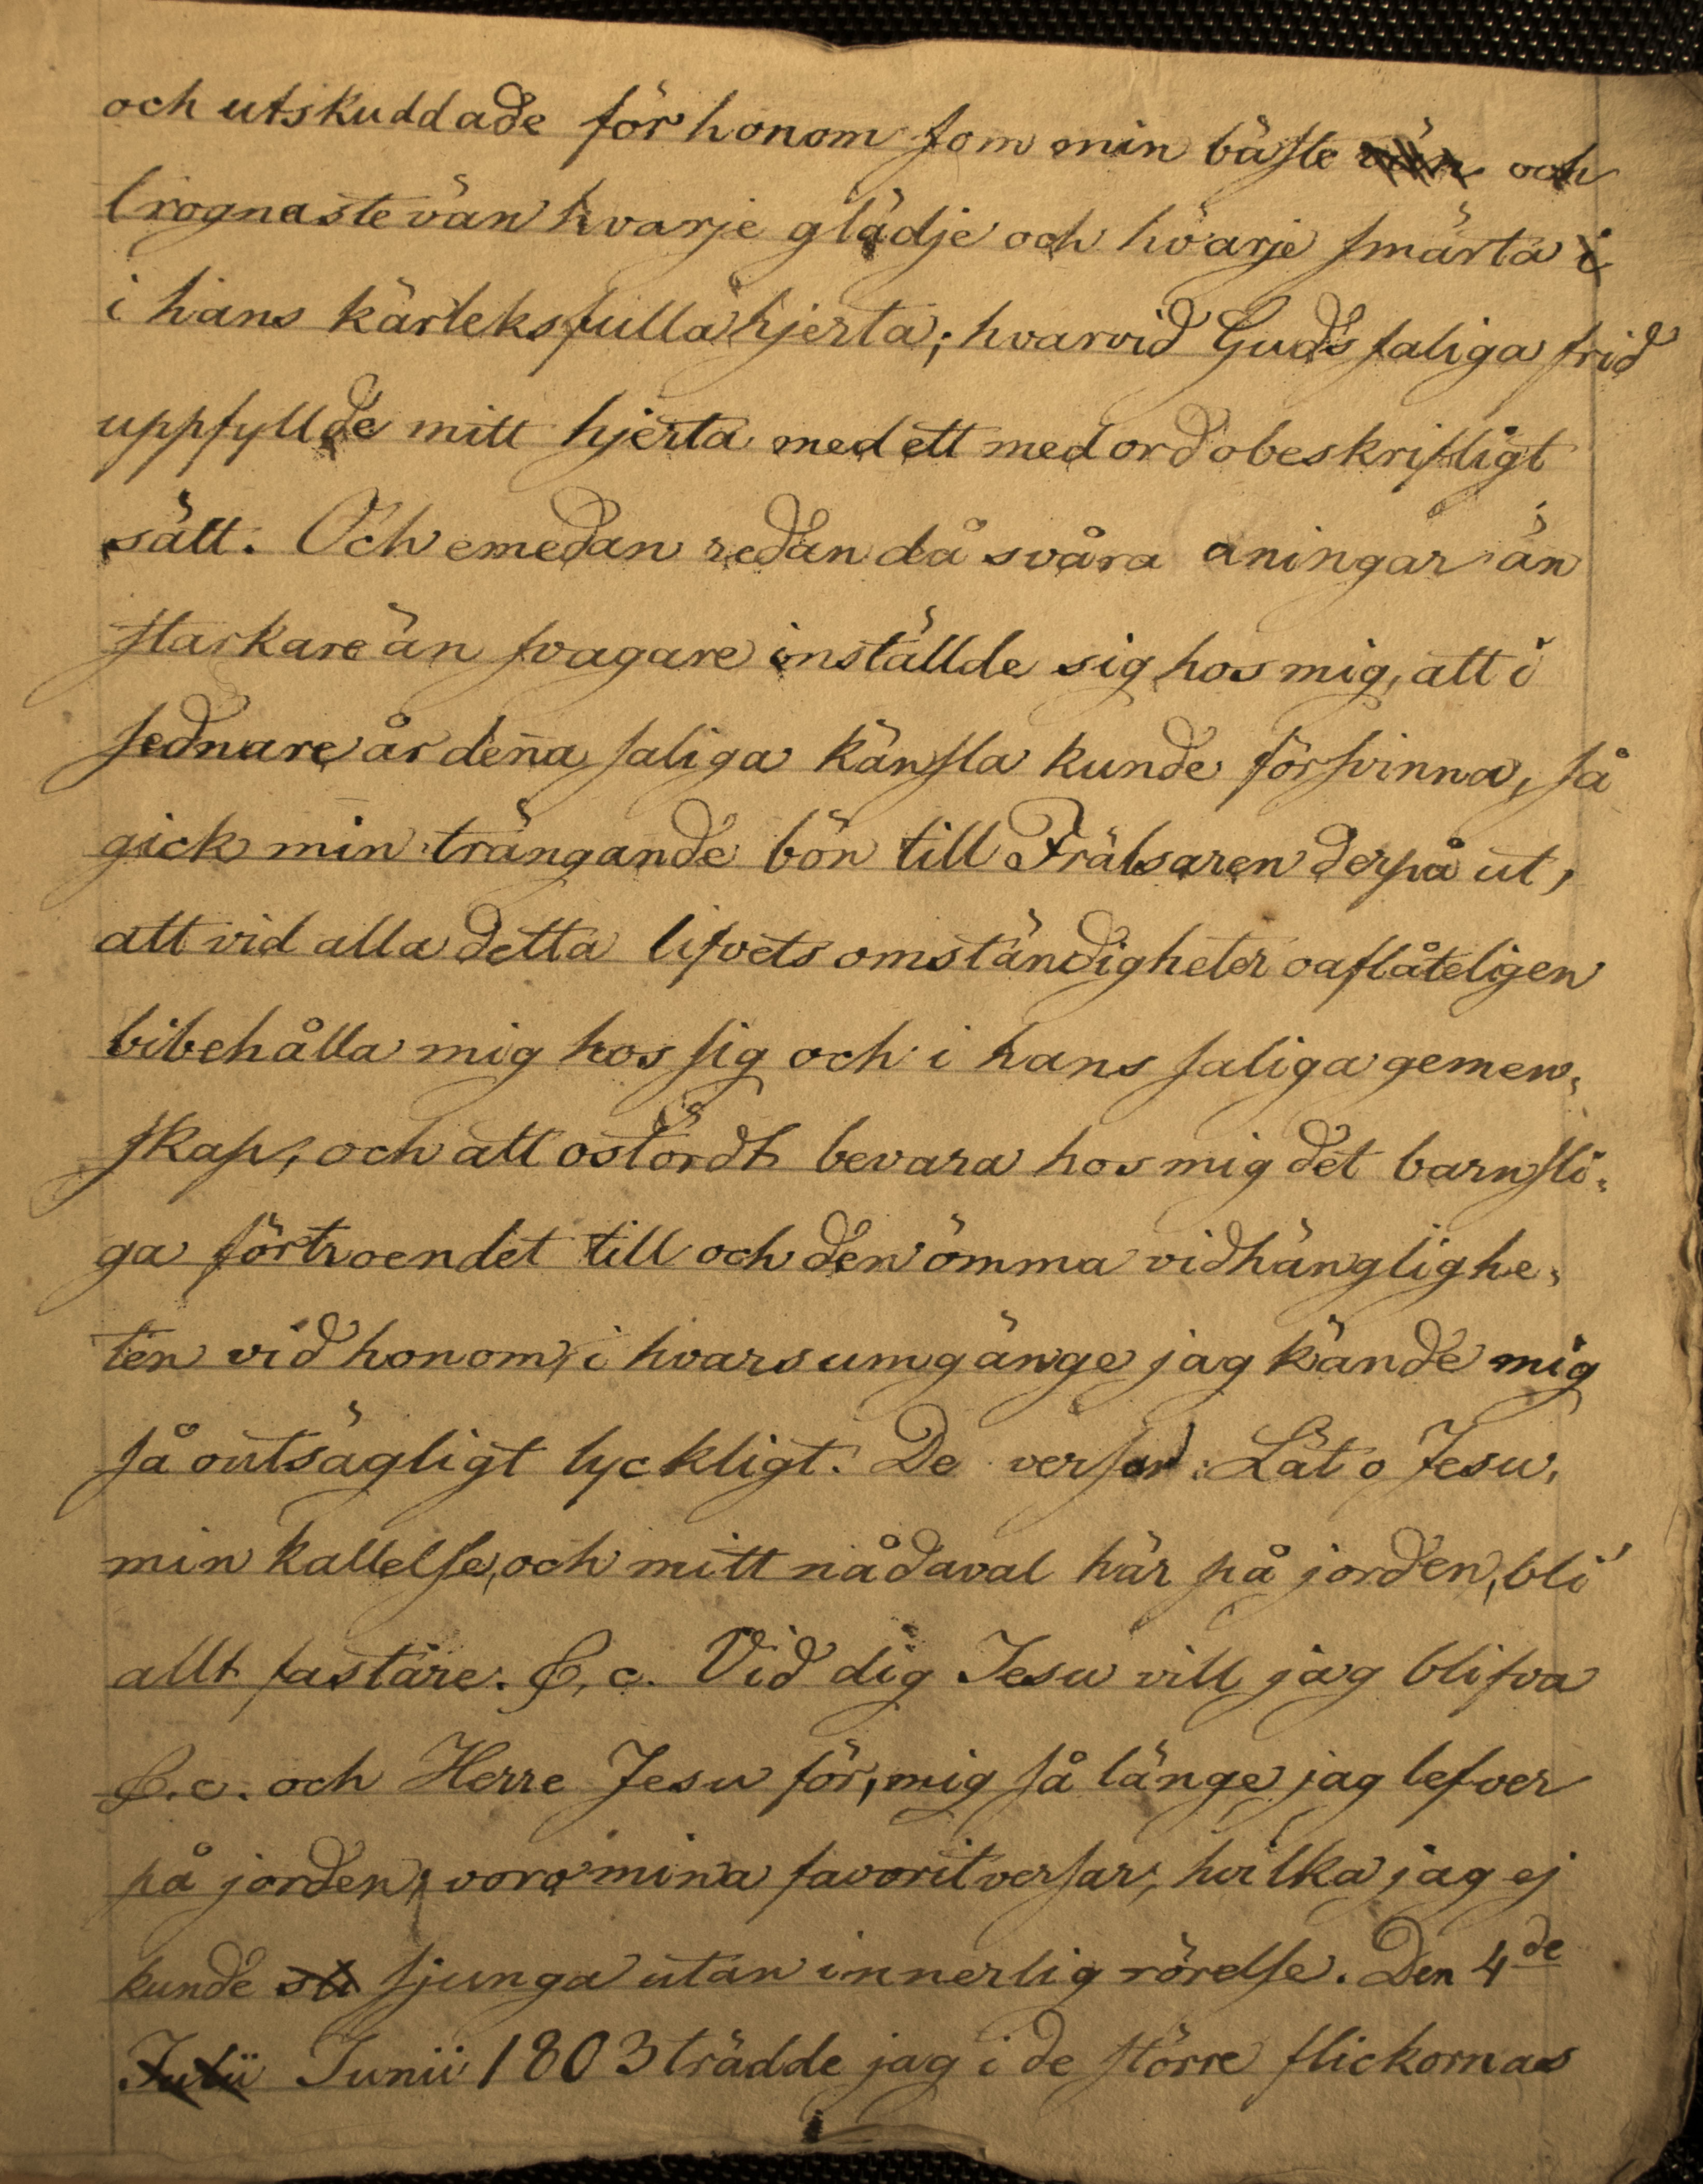 och utskuddade för honom som min bäste vän och
trognaste vän hvarje glädje och hvarje smärta i
i hans kärleksfulla hjerta; hvarvid Guds saliga frid
uppfyllde mitt hjerta med ett med ord obeskrifligt
sätt. Och emedan redan då svåra aningar än
starkare än svagare inställde sig hos mig, att i
sednare år den̄a saliga känsla kunde försvinna, så
gick min trängande bön till Frälsaren derpå ut,
att vid alla detta lifvets omständigheter oaflåteligen
bibehålla mig hos sig och i hans saliga gemen„
skap, och att ostördt bevara hos mig det barnsli„
ga förtroendet till och den ömma vidhänglighe„
ten vid honom, i hvars umgänge jag kände mig
så outsägligt lyckligt. De versar: Låt o Jesu,
min kallelse, och mitt nådaval här på jorden, bli
allt fastare. &.c. Vid dig Jesu vill jag blifva
&.c. och Herre Jesu för, mig så länge jag lefver
på jorden, voro mina favoritversar, hvilka jag ej
kunde sju sjunga utan innerlig rörelse. Den 4de
Julii Junii 1803 trädde jag i de större flickornas